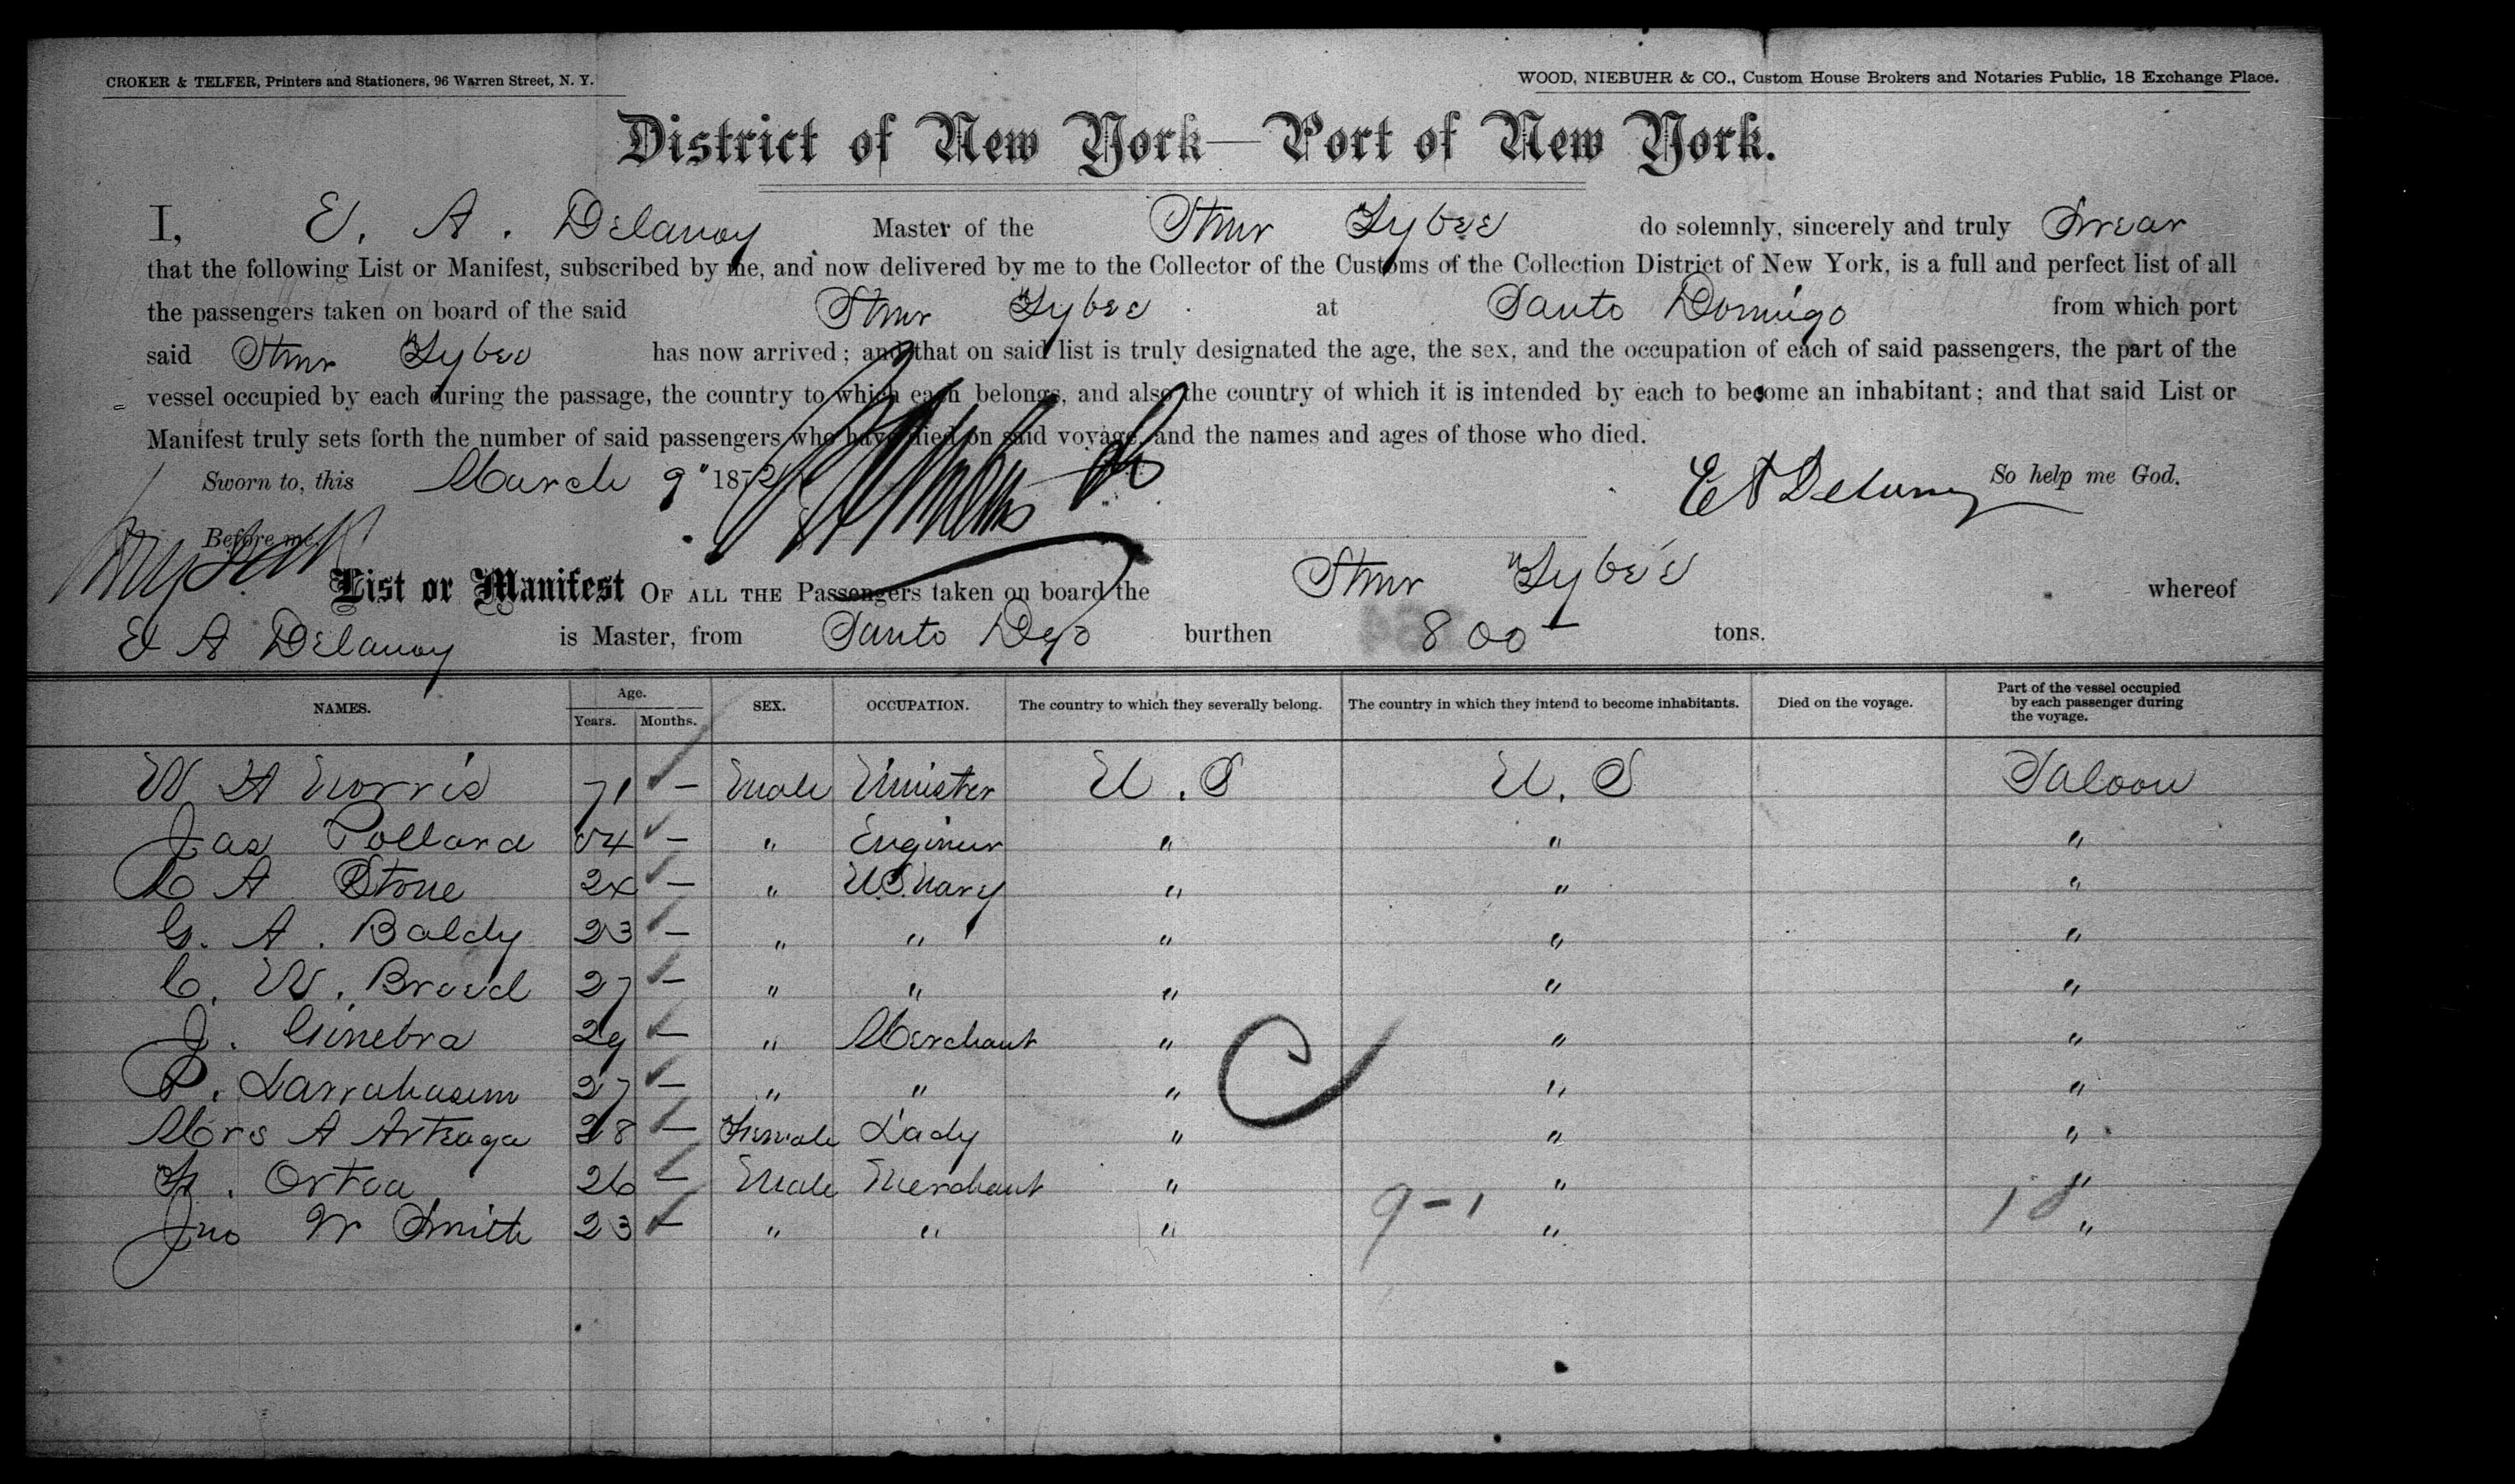 CROKER & TELFER, Printers and Stationers, 96 Warren Street, N. Y.
WOOD, NIEBUHR & CO., Custom House Brokers and Notaries Public, 18 Exchange Place.
District of New York—Port of New York.
I, E. A. Delanoy Master of the Stmr Tybee do solemnly, sincerely and truly Swear
that the following List or Manifest, subscribed by me, and now delivered by me to the Collector of the Customs of the Collection District of New York, is a full and perfect list of all
the passengers taken on board of the said Stmr Tybee at Santo Domingo from which port
said Stmr Tybee has now arrived; and that on said list is truly designated the age, the sex, and the occupation of each of said passengers, the part of the
vessel occupied by each during the passage, the country to which each belongs, and also the country of which it is intended by each to become an inhabitant; and that said List or
Manifest truly sets forth the number of said passengers who have died on said voyage, and the names and ages of those who died.
Sworn to, this March 9" 1872 E A Delanoy So help me God.
Before me,
List or Manifest OF ALL THE Passengers taken on board the Stmr Tybee whereof
E A Delanoy is Master, from Santo Dgo burthen 800 tons.
NAMES. Age. Years. Months. SEX. OCCUPATION. The country to which they severally belong. The country in which they intend to become inhabitants. Died on the voyage. Part of the vessel occupied by each passenger during the voyage.
W H Norris 71 – Male Minister U.S U.S Saloon
Jas Pollard 54 – " Engineer " " "
C A Stone 24 – " U.S. Navy " " "
G. A. Baldy 23 – " " " " "
C. W. Breed 27 – " " " " "
J. Ginebra 29 – " Merchant " " "
P. 27 – " " " " "
Mrs A Arteaga 28 – Female Lady " " "
F. Ortea 26 – Male Merchant " " "
Jno W Smith 23 – " " " " "
9-1 10